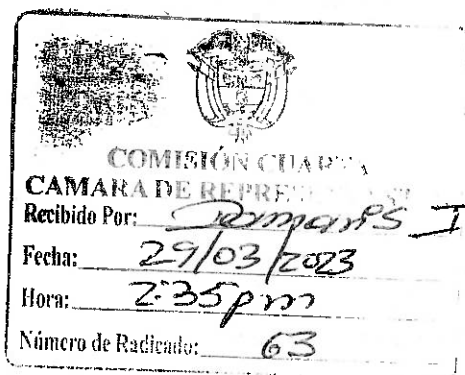 COMISIÓN CUARTA
CAMARA DE REPRE
Recibido Por: Damaris I
Fecha: 29/03/2023
Hora: 2:35pm
Número de Radicado: 63